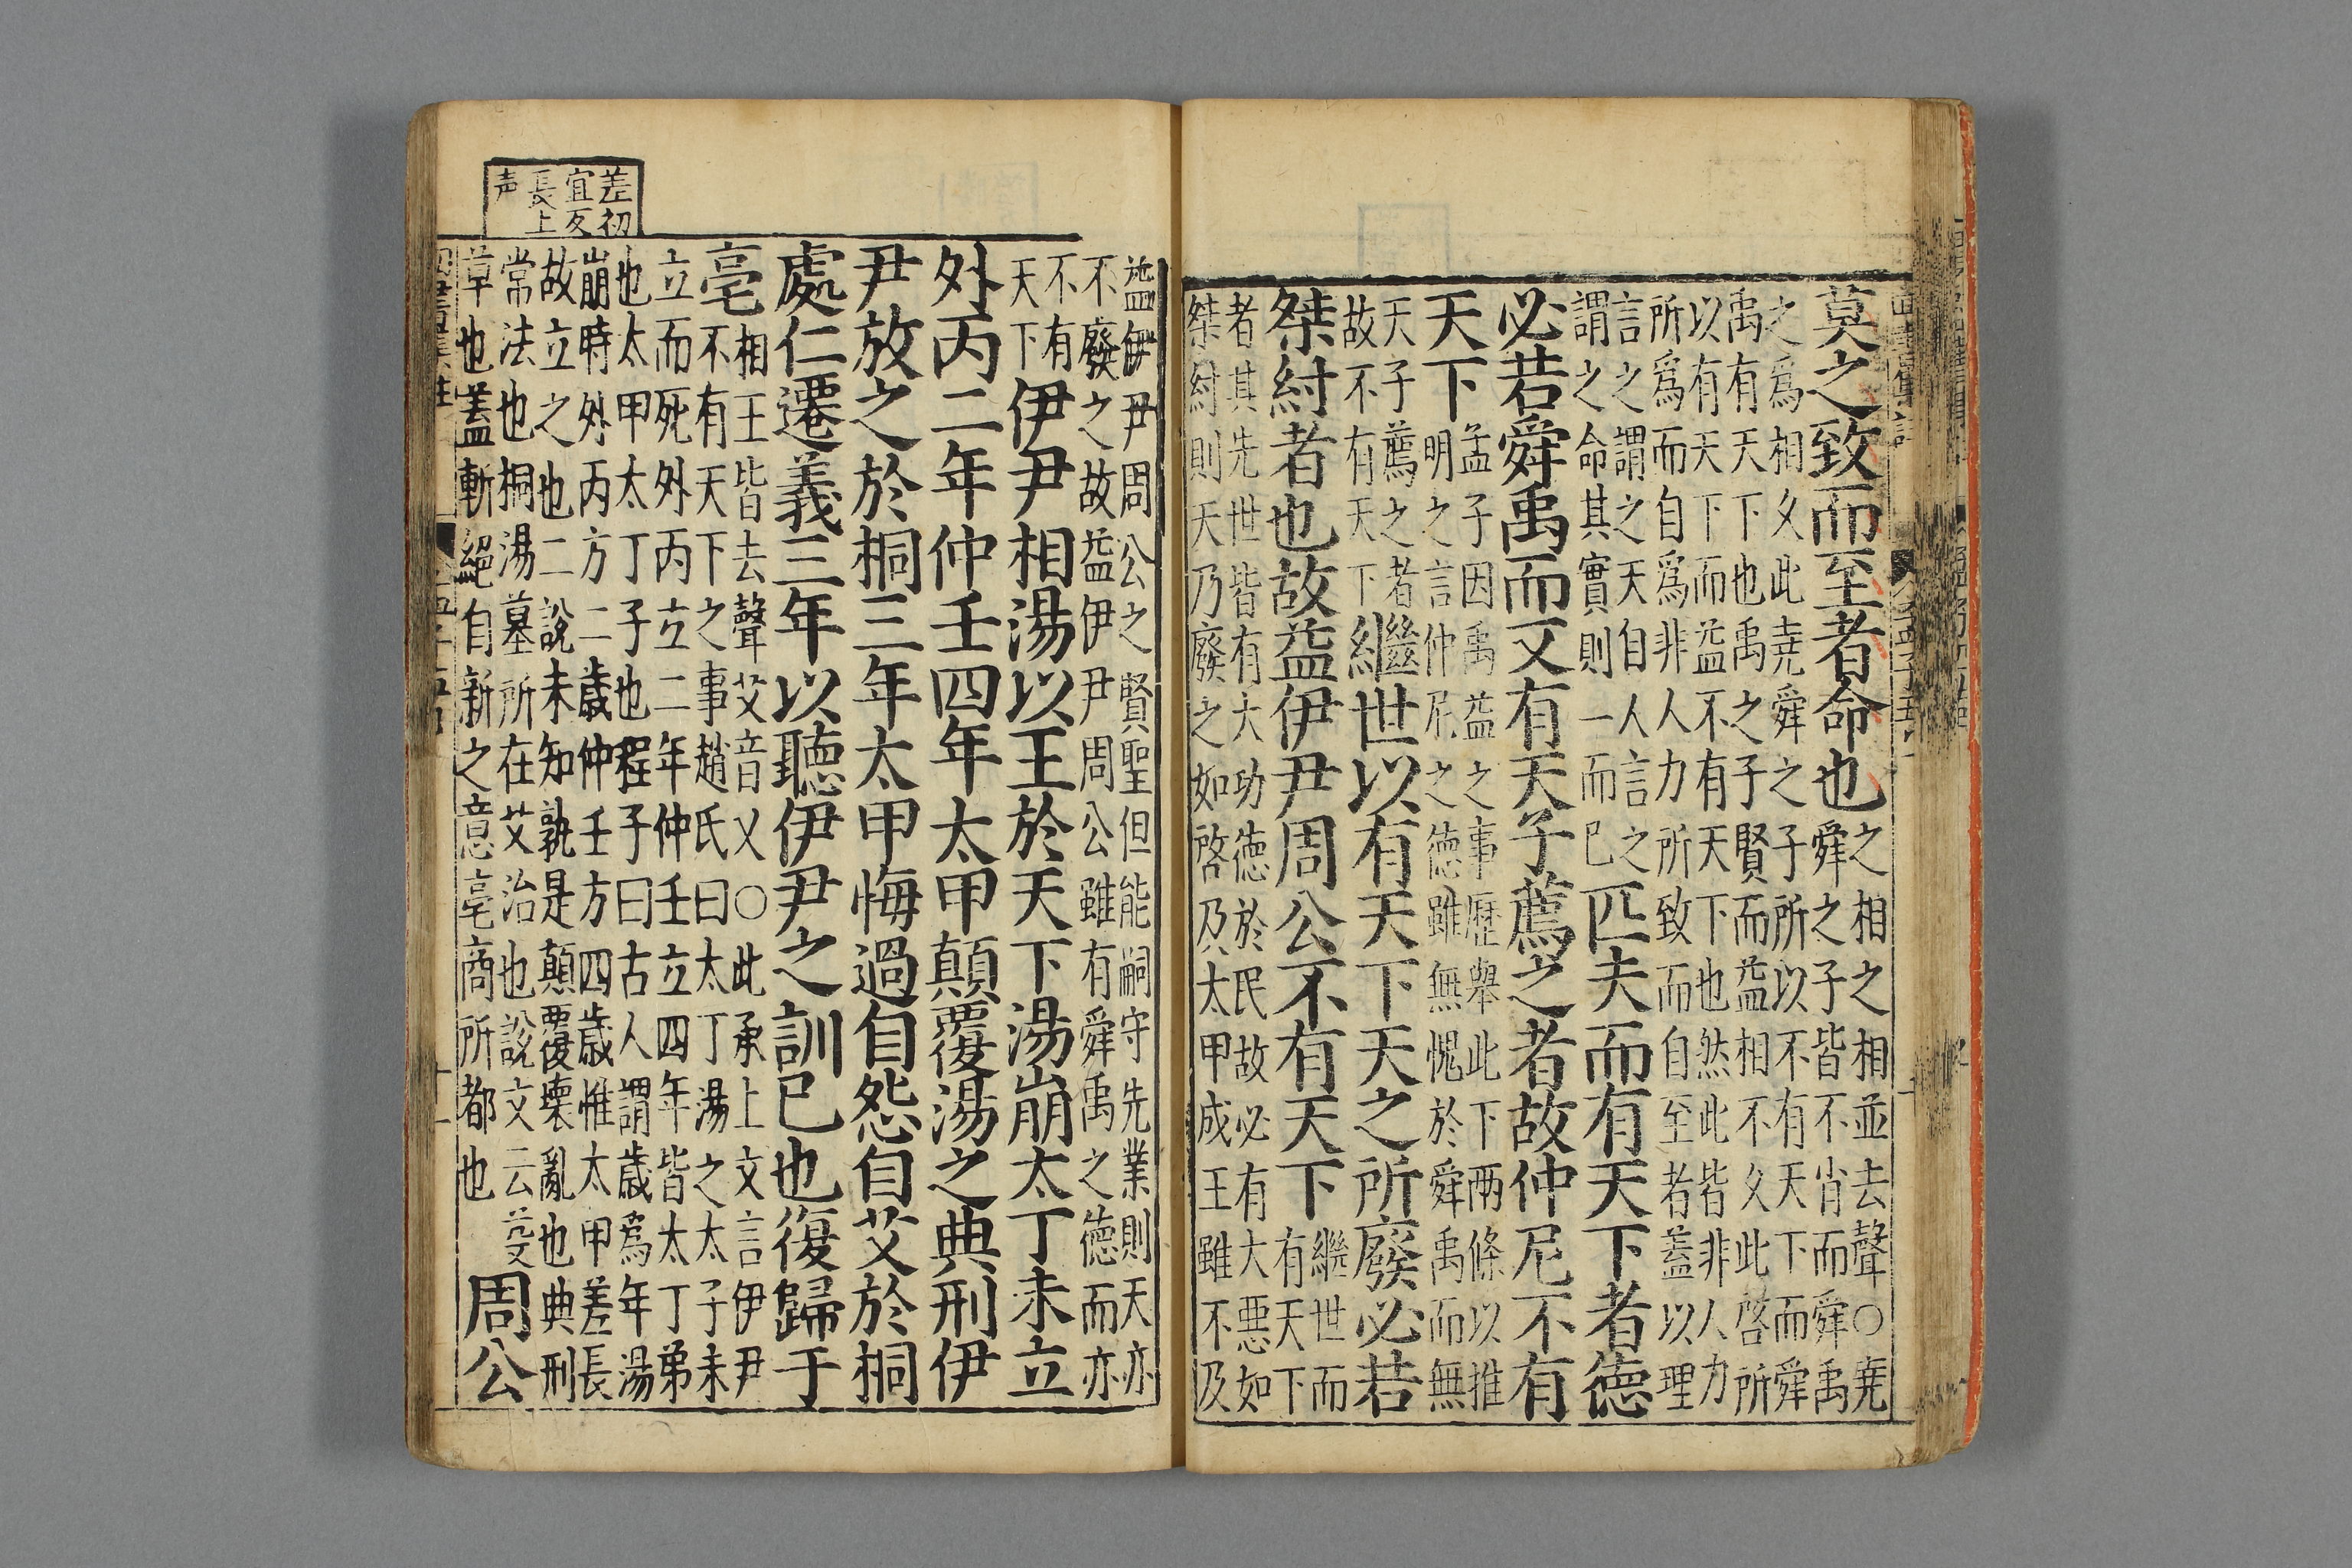 莫之致而至者命也
之相之相並去聲○堯
舜之子皆不肖而舜禹
之爲相久此堯舜之子所以不有天下而舜
禹有天下也禹之子賢而益相不久此啓所
以有天下而益不有天下也然此皆非人力
所爲而自爲非人力所致而自至者蓋以理
言之謂之天自人言之
謂之命其實則一而已
匹夫而有天下者德
必若舜禹而又有天子薦之者故仲尼不有
天下
孟子因禹益之事歷舉此下兩條以推
明之言仲尼之德雖無愧於舜禹而無
天子薦之者
故不有天下
繼世以有天下天之所廢必若
桀紂者也故益伊尹周公不有天下
繼世而
有天下
者其先世皆有大功德於民故必有大悪如
桀紂則天乃廢之如啓及太甲成王雖不及
益伊尹周公之賢聖但能嗣守先業則天亦
不廢之故益伊尹周公雖有舜禹之德而亦
不有
天下
伊尹相湯以王於天下湯崩太丁未立
外丙二年仲壬四年太甲顛覆湯之典刑伊
尹放之於桐三年太甲悔過自怨自艾於桐
處仁遷義三年以聽伊尹之訓已也復歸于
亳
相王皆去聲艾音乂○此承上文言伊尹
不有天下之事趙氏曰太丁湯之太子未
立而死外丙立二年仲壬立四年皆太丁弟
也太甲太丁子也程子曰古人謂歲爲年湯
崩時外丙方二歲仲壬方四歲惟太甲差長
故立之也二說未知孰是顛覆壞亂也典刑
常法也桐湯墓所在艾治也說文云芟
草也蓋斬絕自新之意亳商所都也
周公
差初
宜反
長上
声